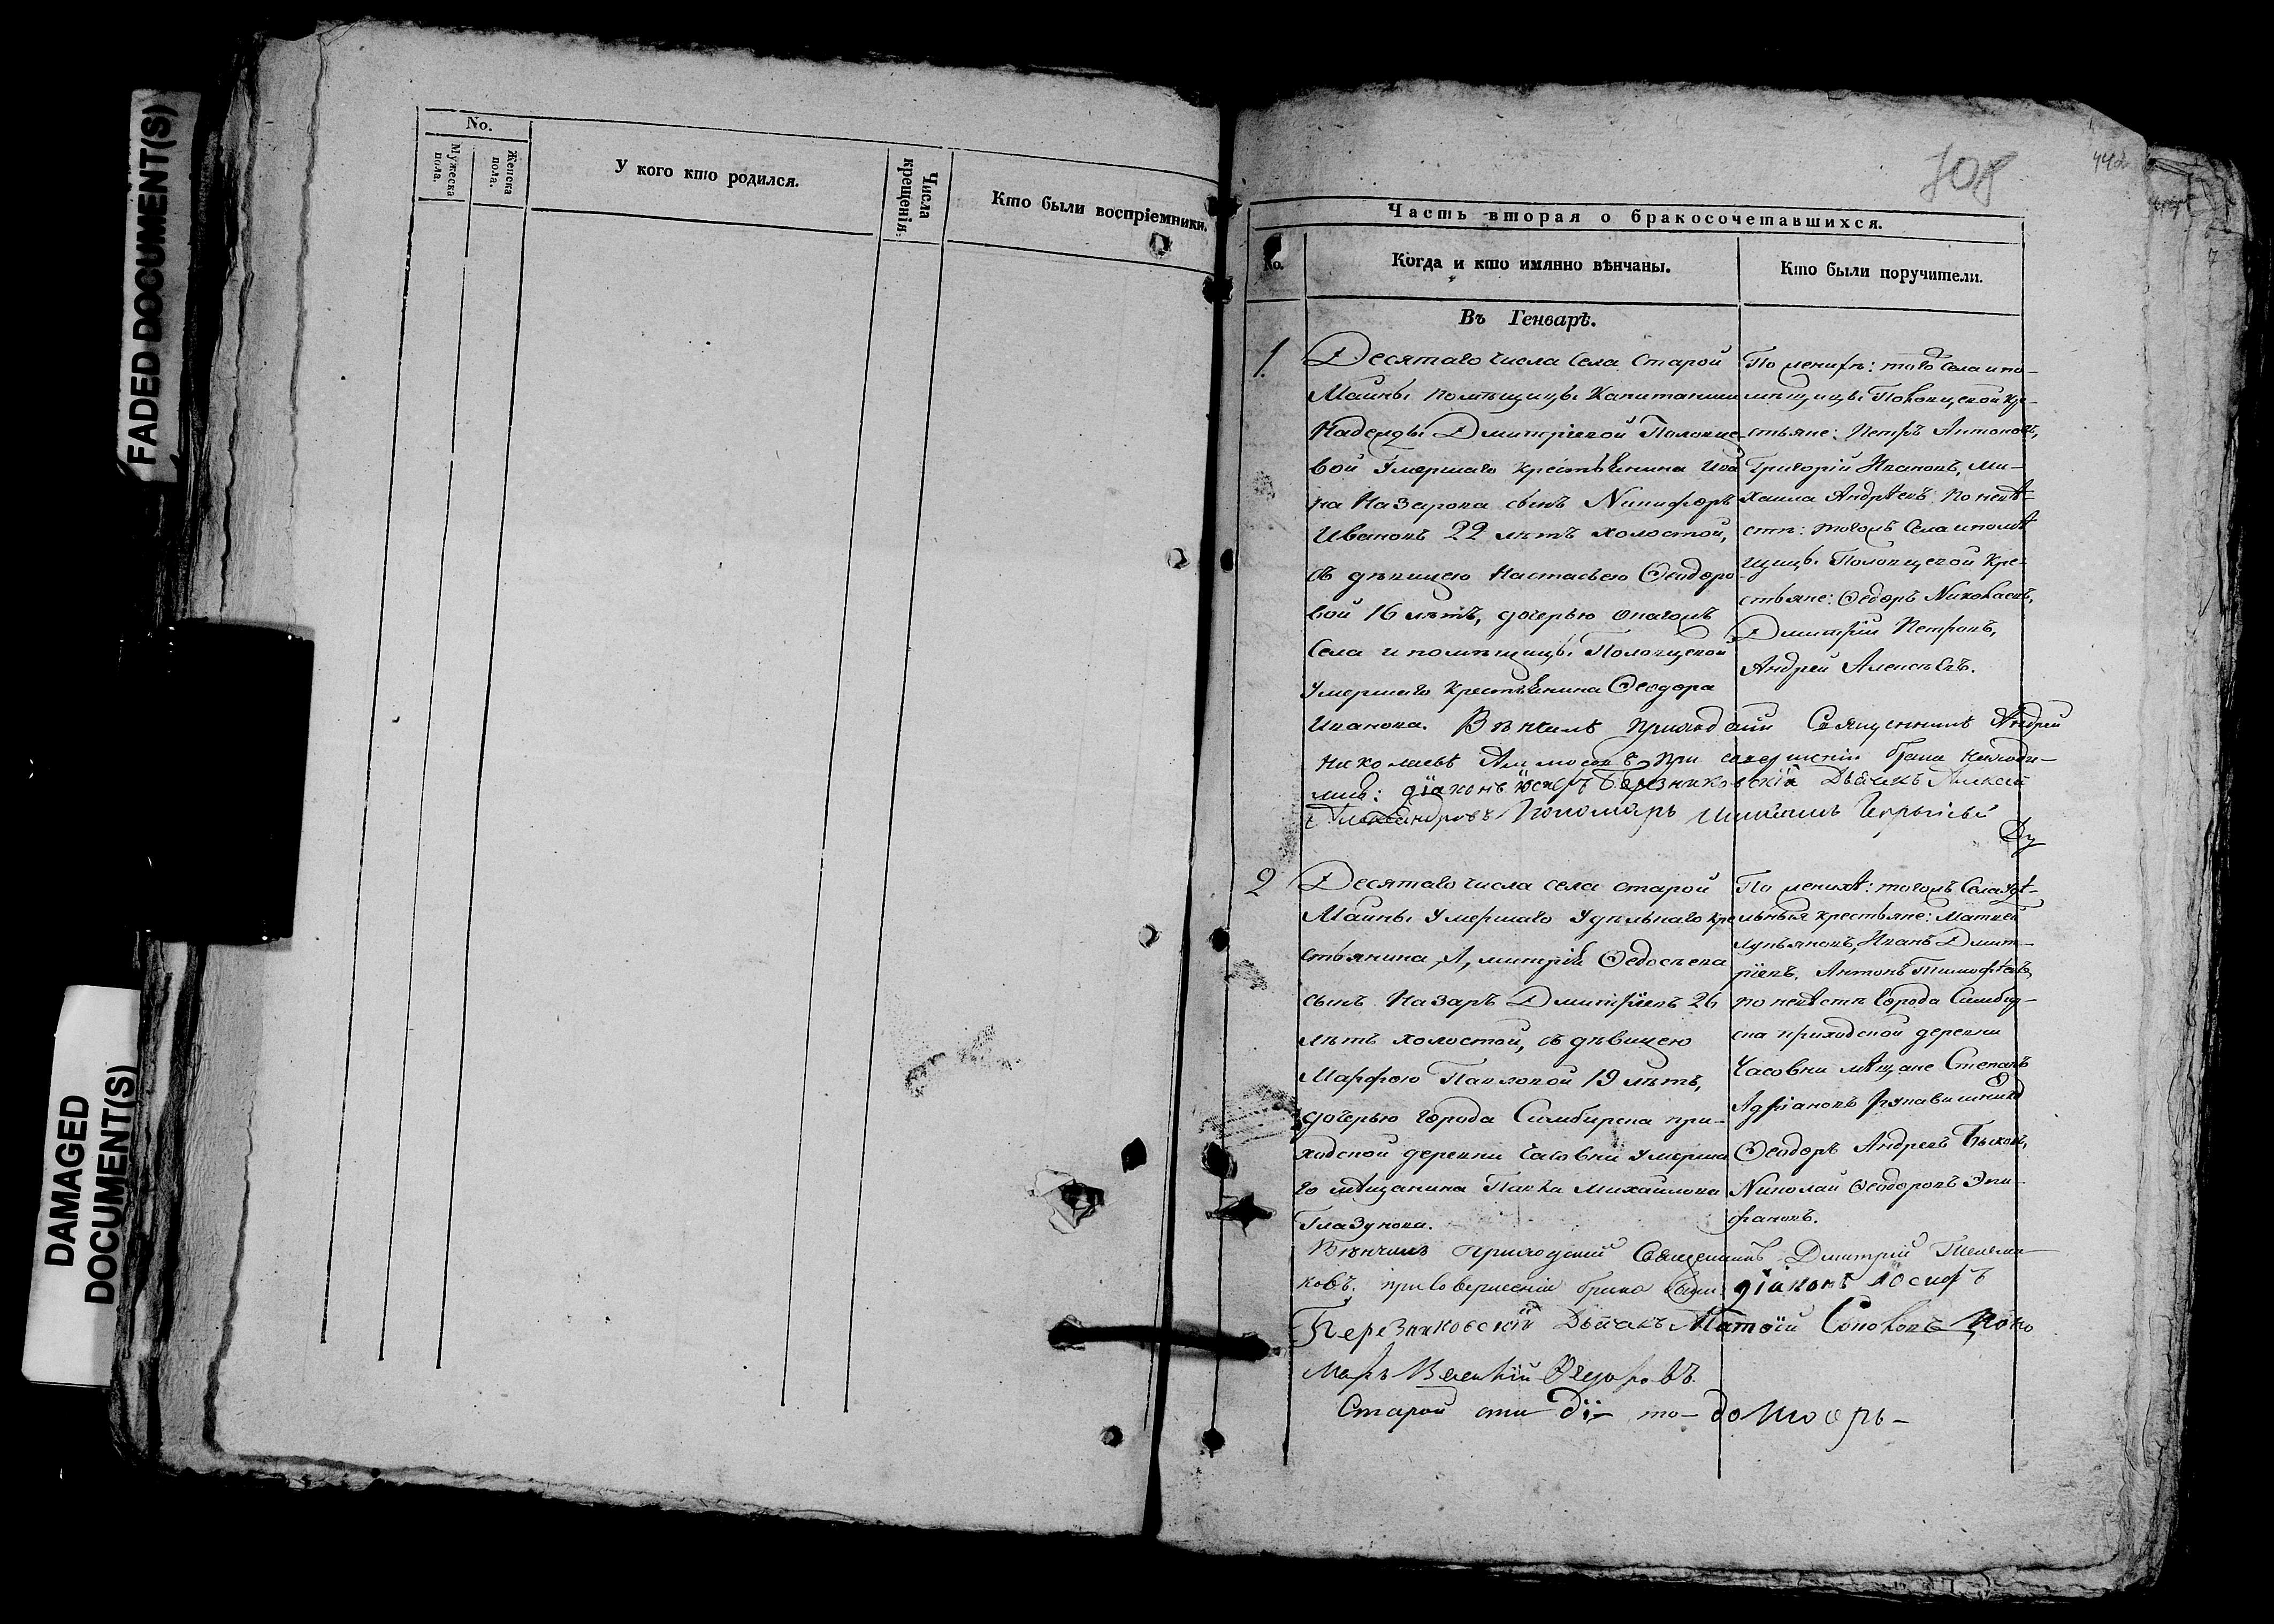 FADED DOCUMENT(S)
DAMAGED
DOCUMENT(S)
No.
Мужеска
пола.
Женска
пола.
У кого кто родился.
Числа
крещенія.
Кто были воспріемники.
708
442
Часть вторая о бракосочетавшихся.
No.
Когда и кто имянно вѣнчаны.
Кто были поручители.
Въ Генварѣ.
1.
Десятаго числа Села Старой
Майны помѣщицы Капитанши
Надежды Дмитріевой Полоцке-
вой Умершаго крестьянина Ива
на Назарова сынъ Никифоръ
Ивановъ 22 лѣтъ холостой,
съ дѣвицею Настасьею Феодоро
вой 16 лѣтъ, дочерью онагожъ
Села и помѣщицы
Умершаго крестьянина Феодора
Иванова. Вѣнчалъ приходскій Священникъ Андрей
Николаевъ при совершеніи брака находи-
лись: діаконъ Іосифъ Березниковскій Дьячекъ Алексей
Александровъ Пономарь
По женихѣ: того Села и по-
мѣщицы кре-
стьяне: Петръ Антоновъ,
Григорій Ивановъ, Ми-
хаила Андреевъ по невѣ-
стѣ: тогожъ Села и помѣ
щицы кре-
стьяне: Федоръ Николаевъ,
Дмитрій Петровъ,
Андрей Алексѣевъ.
2
Десятаго числа села старой
Майны Умершаго Удѣльнаго кре
стьянина Дмитрія Федосѣева
сынъ Назаръ Дмитріевъ 26
лѣтъ холостой, съ дѣвицею
Марфою Павловой 19 лѣтъ,
дочерью города Симбирска при-
ходской деревни Часовни Умерша
го мѣщанина Павла Михайлова
Глазунова.
Вѣнчалъ приходскій Священникъ Дмитрій
ковъ. при совершеніи брака были: діаконъ Іосифъ
Березниковскій Дьячекъ Матвій Соколовъ Поно
марь Василій Федоровъ
По женихѣ: тогожъ Села Удѣ-
льныя крестьяне: Матвей
Лукьяновъ, Иванъ Дмит-
ріевъ, Антонъ Тимофѣевъ,
по невѣстѣ города Симбир-
ска приходской деревни
Часовни мѣщане Степанъ
Адріановъ Рукавишников
Феодоръ Андреевъ Быковъ,
Николай Феодоровъ Эпи-
фановъ.
Старой